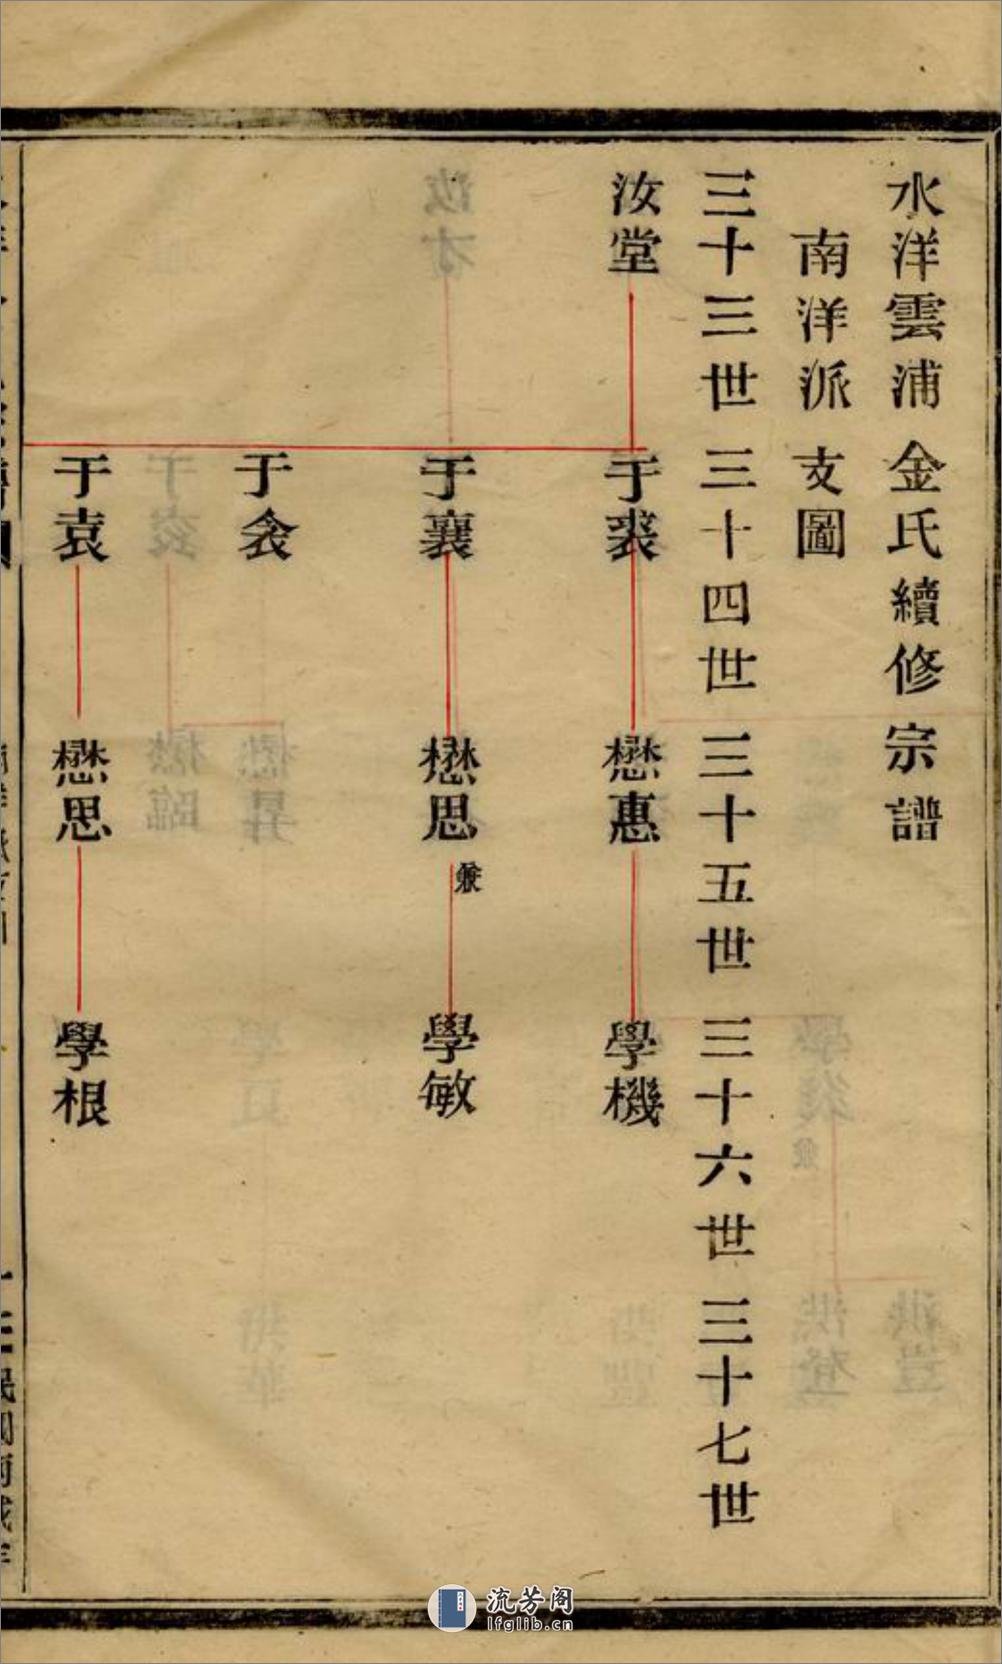 水洋雲浦金氏續修宗譜
南洋派支圖
三十三世 三十四世 三十五世 三十六世 三十七世
汝堂 于裘 懋惠 學機
于襄 懋思 學敏
于衾
于袁 懋思 學根
流芳阁
lfglib.cn